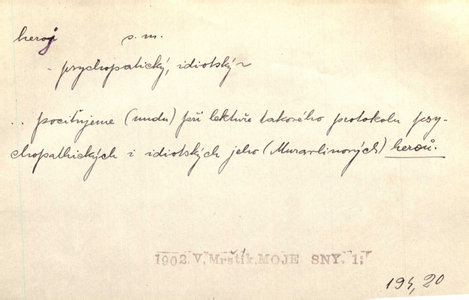 heroj s. m.
- psychopatický, idiotský ~
.. pociťujeme (nudu) při lektuře takového protokolu psy-
chopathických i idiotských jeho (Muravlinových) heroů.
1902 V. Mrštík, MOJE SNY. 1;
194, 20